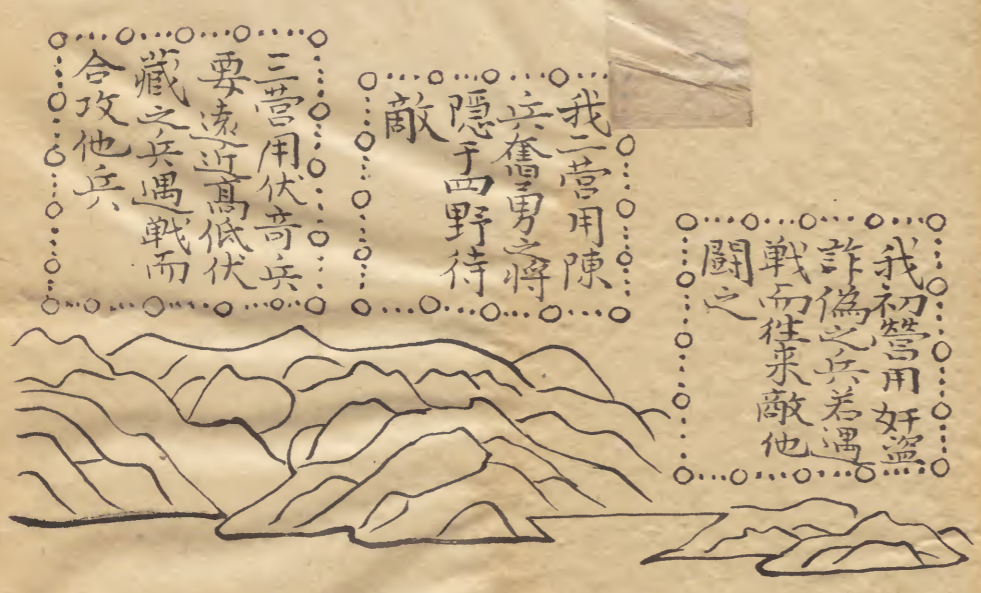 我初營用奸盜
詐偽之兵若遇
戰而往来敵他
鬬之
我二营用陳
兵奮勇之將
隱于四野待
敵
三营用伏奇兵
要遠近髙低伏
藏之兵遇戰而
合攻他兵